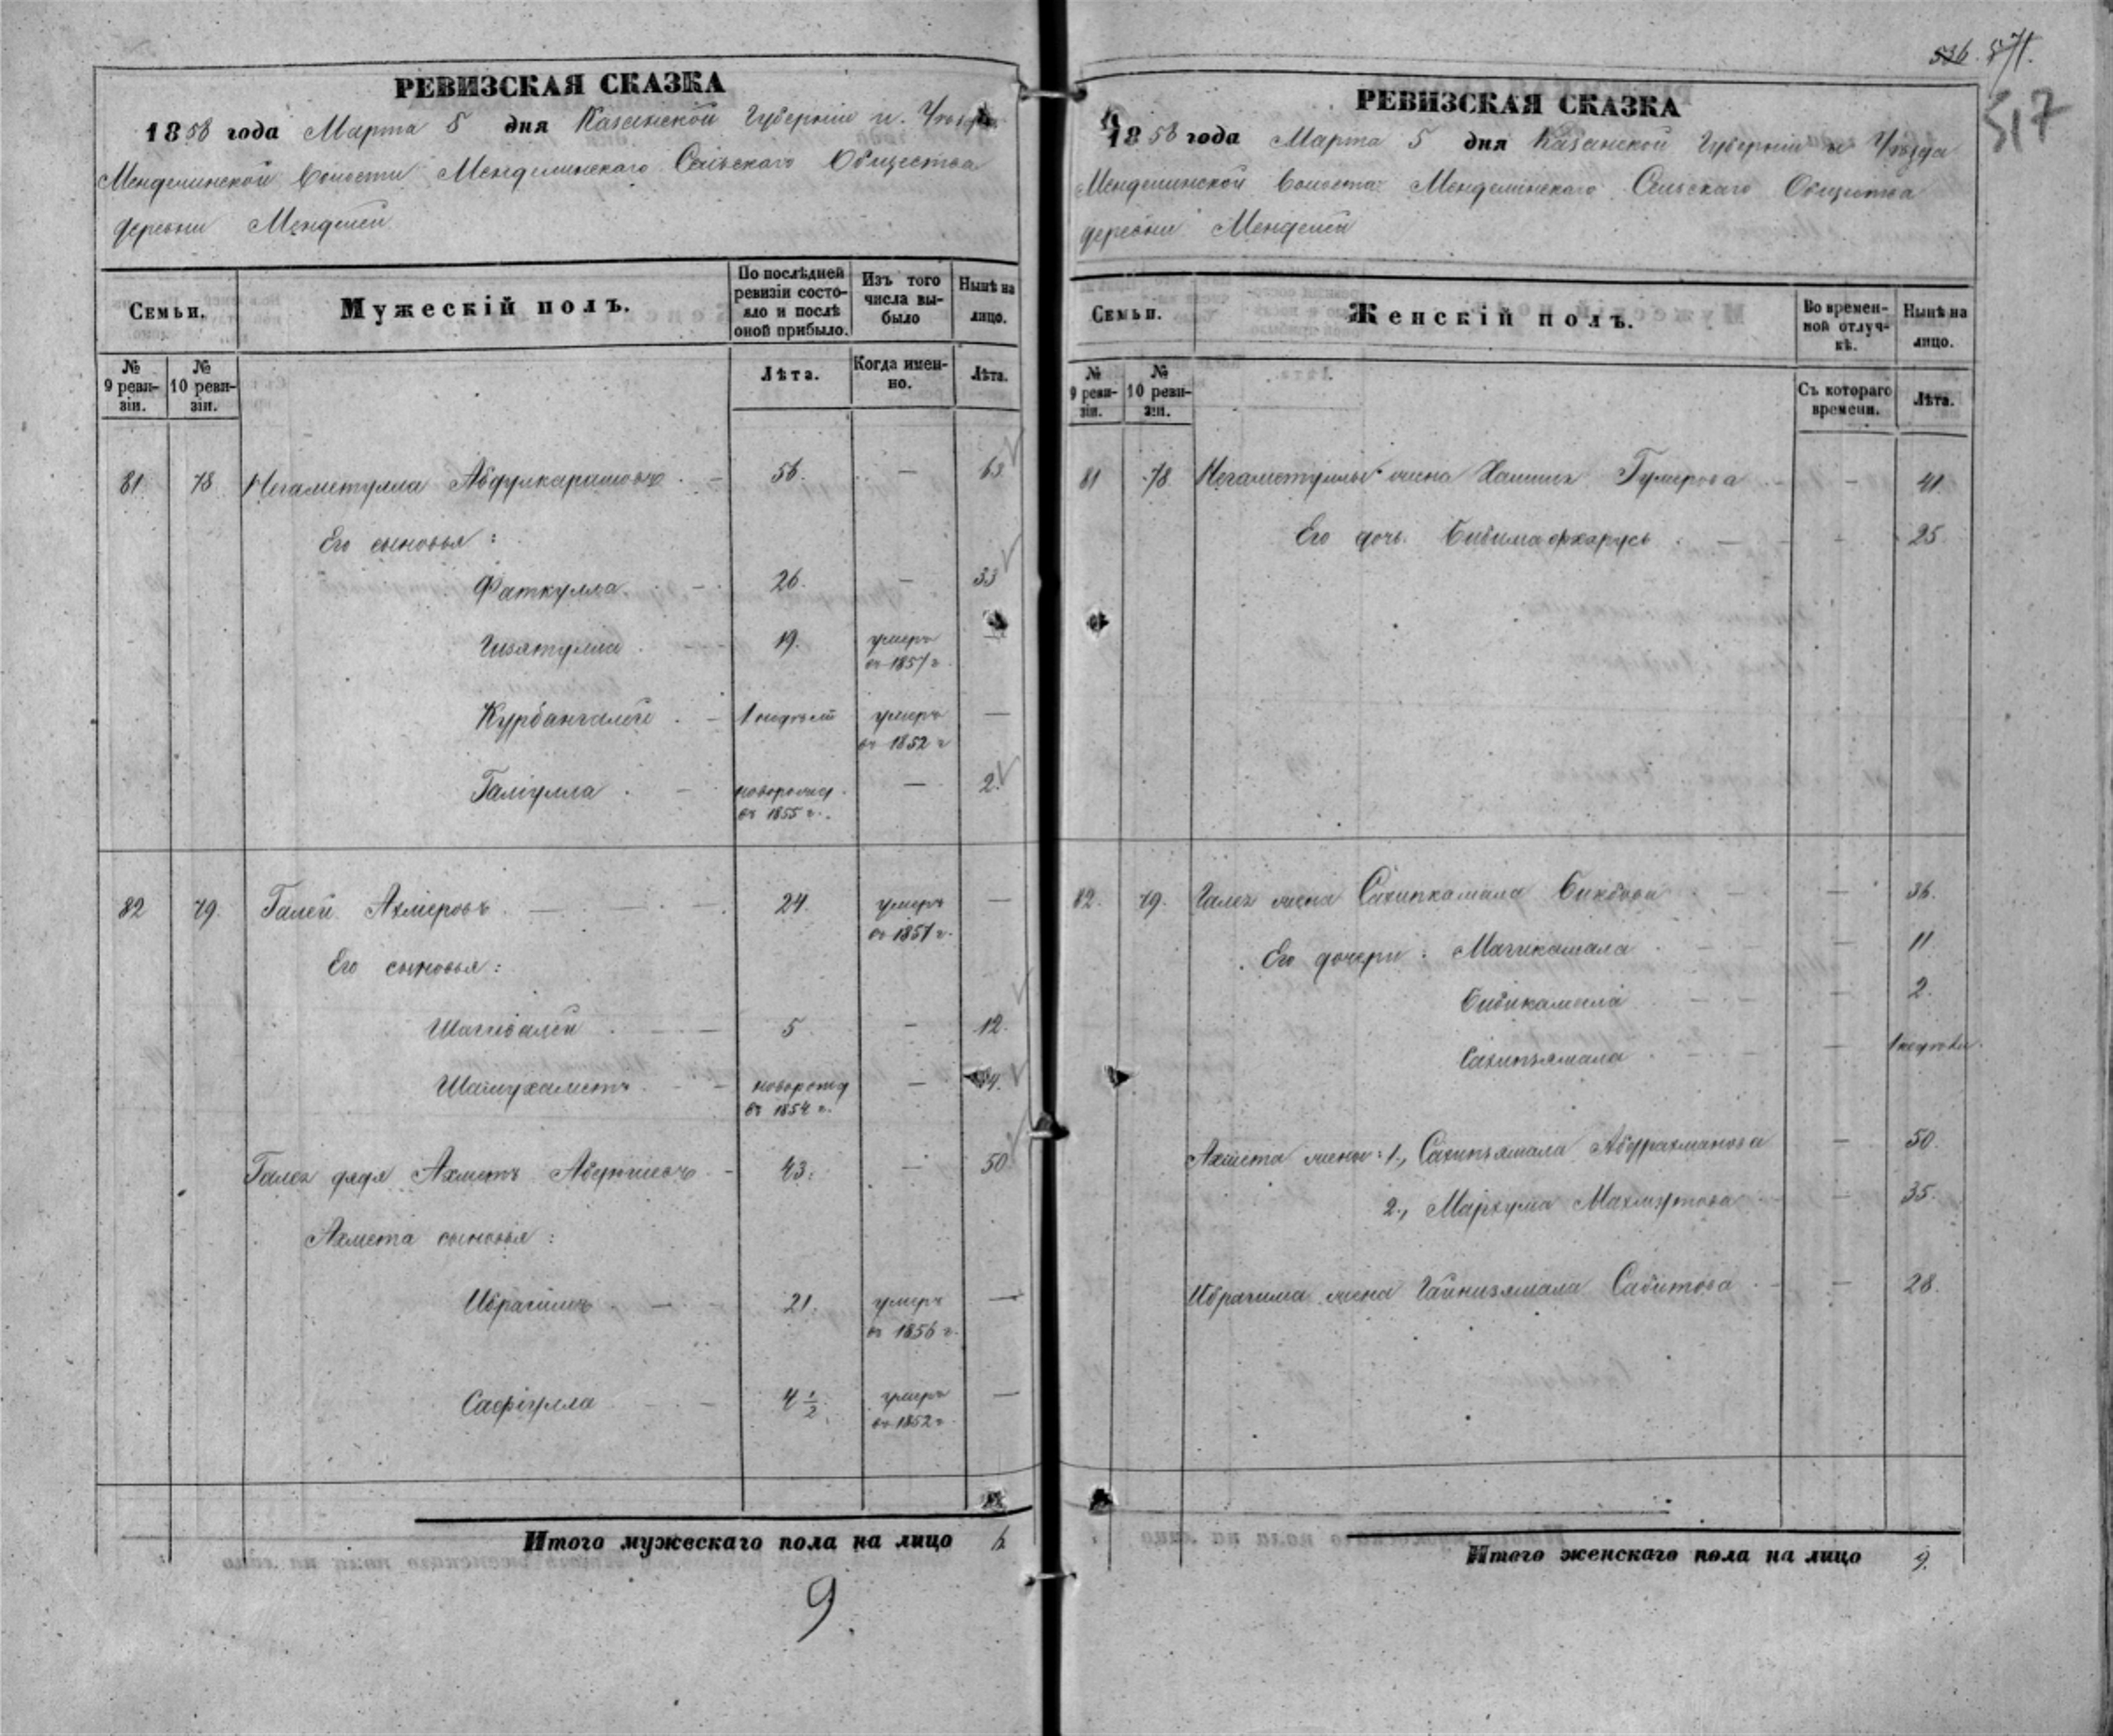 536. 571.
517
РЕВИЗСКАЯ СКАЗКА
1858 года Марта 5 дня Казанской Губернiи и Уѣзда
Менделинской Волости Менделинскаго Сельскаго Общества
деревни Менделей
Семьи. Мужескiй полъ. По послѣдней ревизiи состояло и послѣ оной прибыло. Изъ того числа выбыло Нынѣ на лицо.
№ 9 ревизiи. № 10 ревизiи. Лѣта. Когда именно. Лѣта.
81. 78 Негаметулла Абдулкаримовъ 56. — 63
Его сыновья:
Фаткулла 26. — 33
Гизятулла 19. умеръ въ 1857 г. —
Курбангалей 1 недѣли умеръ въ 1852 г —
Галiулла новорожд. въ 1855 г. — 2.
82 79. Галей Ахмеровъ 24. умеръ въ 1857 г. —
Его сыновья:
Шагивалей 5 — 12.
Шаiмухаметъ новорожд въ 1854 г. — 4.
Галея дядя Ахметъ 43. — 50.
Ахмета сыновья:
Ибрагимъ 21. умеръ въ 1856 г. —
Сафiулла 4 1/2 умеръ въ 1852 г. —
Итого мужескаго пола на лицо 6.
9.
РЕВИЗСКАЯ СКАЗКА
1858 года Марта 5 дня Казанской Губернiи и Уѣзда
Менделинской Волости Менделинскаго Сельскаго Общества
деревни Менделей
Семьи. Женскiй полъ. Во временной отлучкѣ. Нынѣ на лицо.
№ 9 ревизiи. № 10 ревизiи. Съ котораго времени. Лѣта.
81 78 Негаметуллы жена Гумерова — 41.
Его дочь — 25
82. 79. Галея жена Сахипкамала — 36.
Его дочери: Магикамала — 11
Бибикамала — 2.
Сахипзямала — 1 недѣли.
Ахмета жены: 1., Сахипзямала Абдрахманова — 50.
2., Мархума Махмутова — 35.
Ибрагима жена Гайнизямала Сабитова — 28.
Итого женскаго пола на лицо 9.